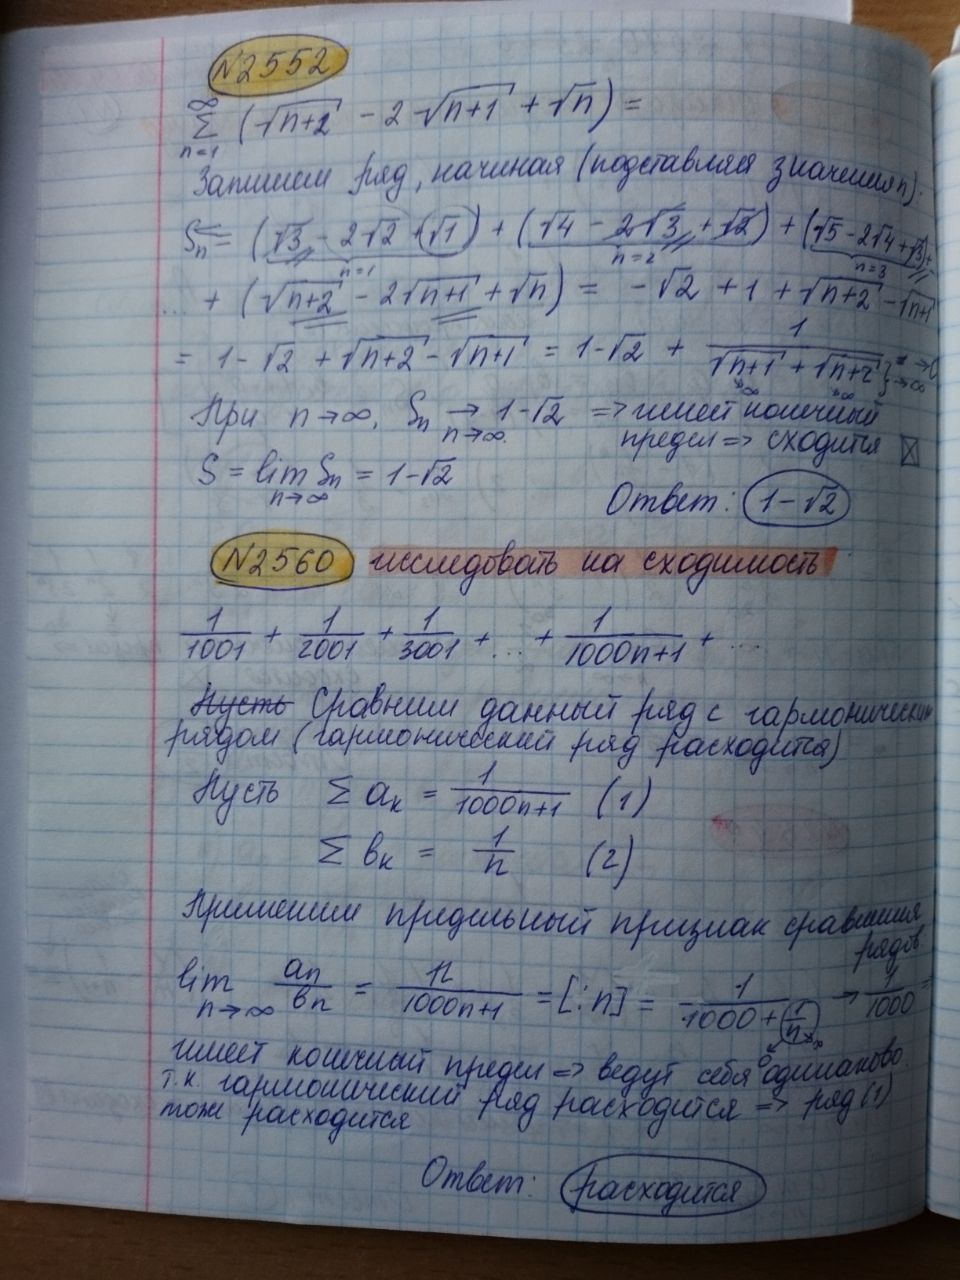 N2552
∞
Σ (√n+2 - 2√n+1 + √n) =
n=1
Запишем ряд, начиная (подставляя значения n):
Sn = (√3 - 2√2 + √1) + (√4 - 2√3 + √2) + (√5 - 2√4 + √3) +
n=1 n=2 n=3
... + (√n+2 - 2√n+1 + √n) = -√2 + 1 + √n+2 - √n+1
= 1-√2 + √n+2 - √n+1 = 1-√2 + 1/(√n+1 + √n+2) } → ∞ → 0
→∞ →∞
При n→∞, Sn → 1-√2 => имеет конечный
n→∞ предел => сходится
S = lim Sn = 1-√2
n→∞
Ответ: 1-√2
N2560 исследовать на сходимость
1/1001 + 1/2001 + 1/3001 + ... + 1/1000n+1 + ...
Пусть Сравним данный ряд с гармоническим
рядом (гармонический ряд расходится)
Пусть Σ aк = 1/1000n+1 (1)
Σ вк = 1/n (2)
Применим предельный признак сравнения
рядов.
lim an/вn = n/1000n+1 = [:n] = 1/1000 + 1/n → 1/1000 =
n→∞ 0 →∞
имеет конечный предел => ведут себя одинаково.
т.к. гармонический ряд расходится => ряд (1)
тоже расходится
Ответ: расходится